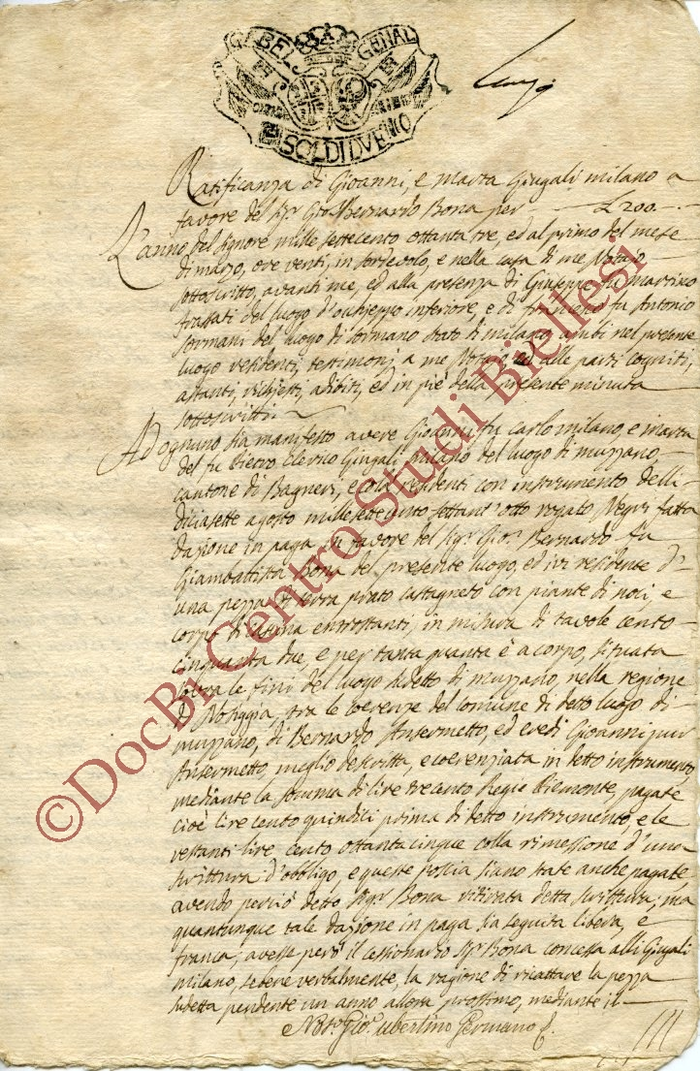 GABEL GENAL
SOLDI DVE
Ratificanza di Gioanni, e Marta Giugali Milano a
favore del Sigr Gio: Bernardo Bona per — £ 200 —
L'anno del Signore mille settecento ottanta tre, ed al primo del mese
di marzo, ore venti, in Sordevolo, e nella casa di me Notajo
sottoscritto, avanti me, ed alla presenza di Giuseppe fu Martino
frassati del luogo d'occhieppo inferiore, e di francesco fu Antonio
Sormani del luogo di Sormano stato di milano, ambi nel presente
luogo residenti, testimonj a me Notajo, ed alle parti cogniti,
astanti, richiesti, adibiti, ed in piè della presente minuta
sottoscritti.
Ad ognuno sia manifesto avere Gioanni fu Carlo milano, e marta
del fu Pietro Clerico Giugali milano del luogo di muzzano,
cantone di Bagneri, e colà residenti con instrumento delli
diciasette agosto mille settecento settant'otto rogato Negri fatta
dazione in paga in favore del Sigr Gio: Bernardo fu
Giambattista Bona del presente luogo, ed ivi residente d'
una pezza di terra prato castagneto con piante di noci, e
corpo di cassina entrostanti, in misura di tavole cento
cinquanta due, e per tanta quanta è a corpo, situata
sovra le fini del luogo sudetto di muzzano, nella regione
tra le coerenze del comune di detto luogo di
muzzano, di Bernardo Ansermetto, ed eredi Gioanni pur
Ansermetto, meglio descritta, e coerenziata in detto instrumento
mediante la somma di lire trecento Regie Piemonte, pagate
cioè lire cento quindici prima di detto instrumento, e le
restanti lire cento ottantacinque colla rimessione d'una
scrittura d'obbligo, e queste poscia siano state anche pagate
avendo perciò detto Sigr Bona ritirata detta scrittura; ma
quantunque tale dazione in paga sia seguita libera, e
franca, avesse però il cessionario Sigr Bona concessa alli Giugali
milano, sebene verbalmente, la ragione di riscattare la pezza
sudetta pendente un anno allora prossimo, mediante il
Not. Gio: Ubertino Germano
©DocBi Centro Studi Biellesi